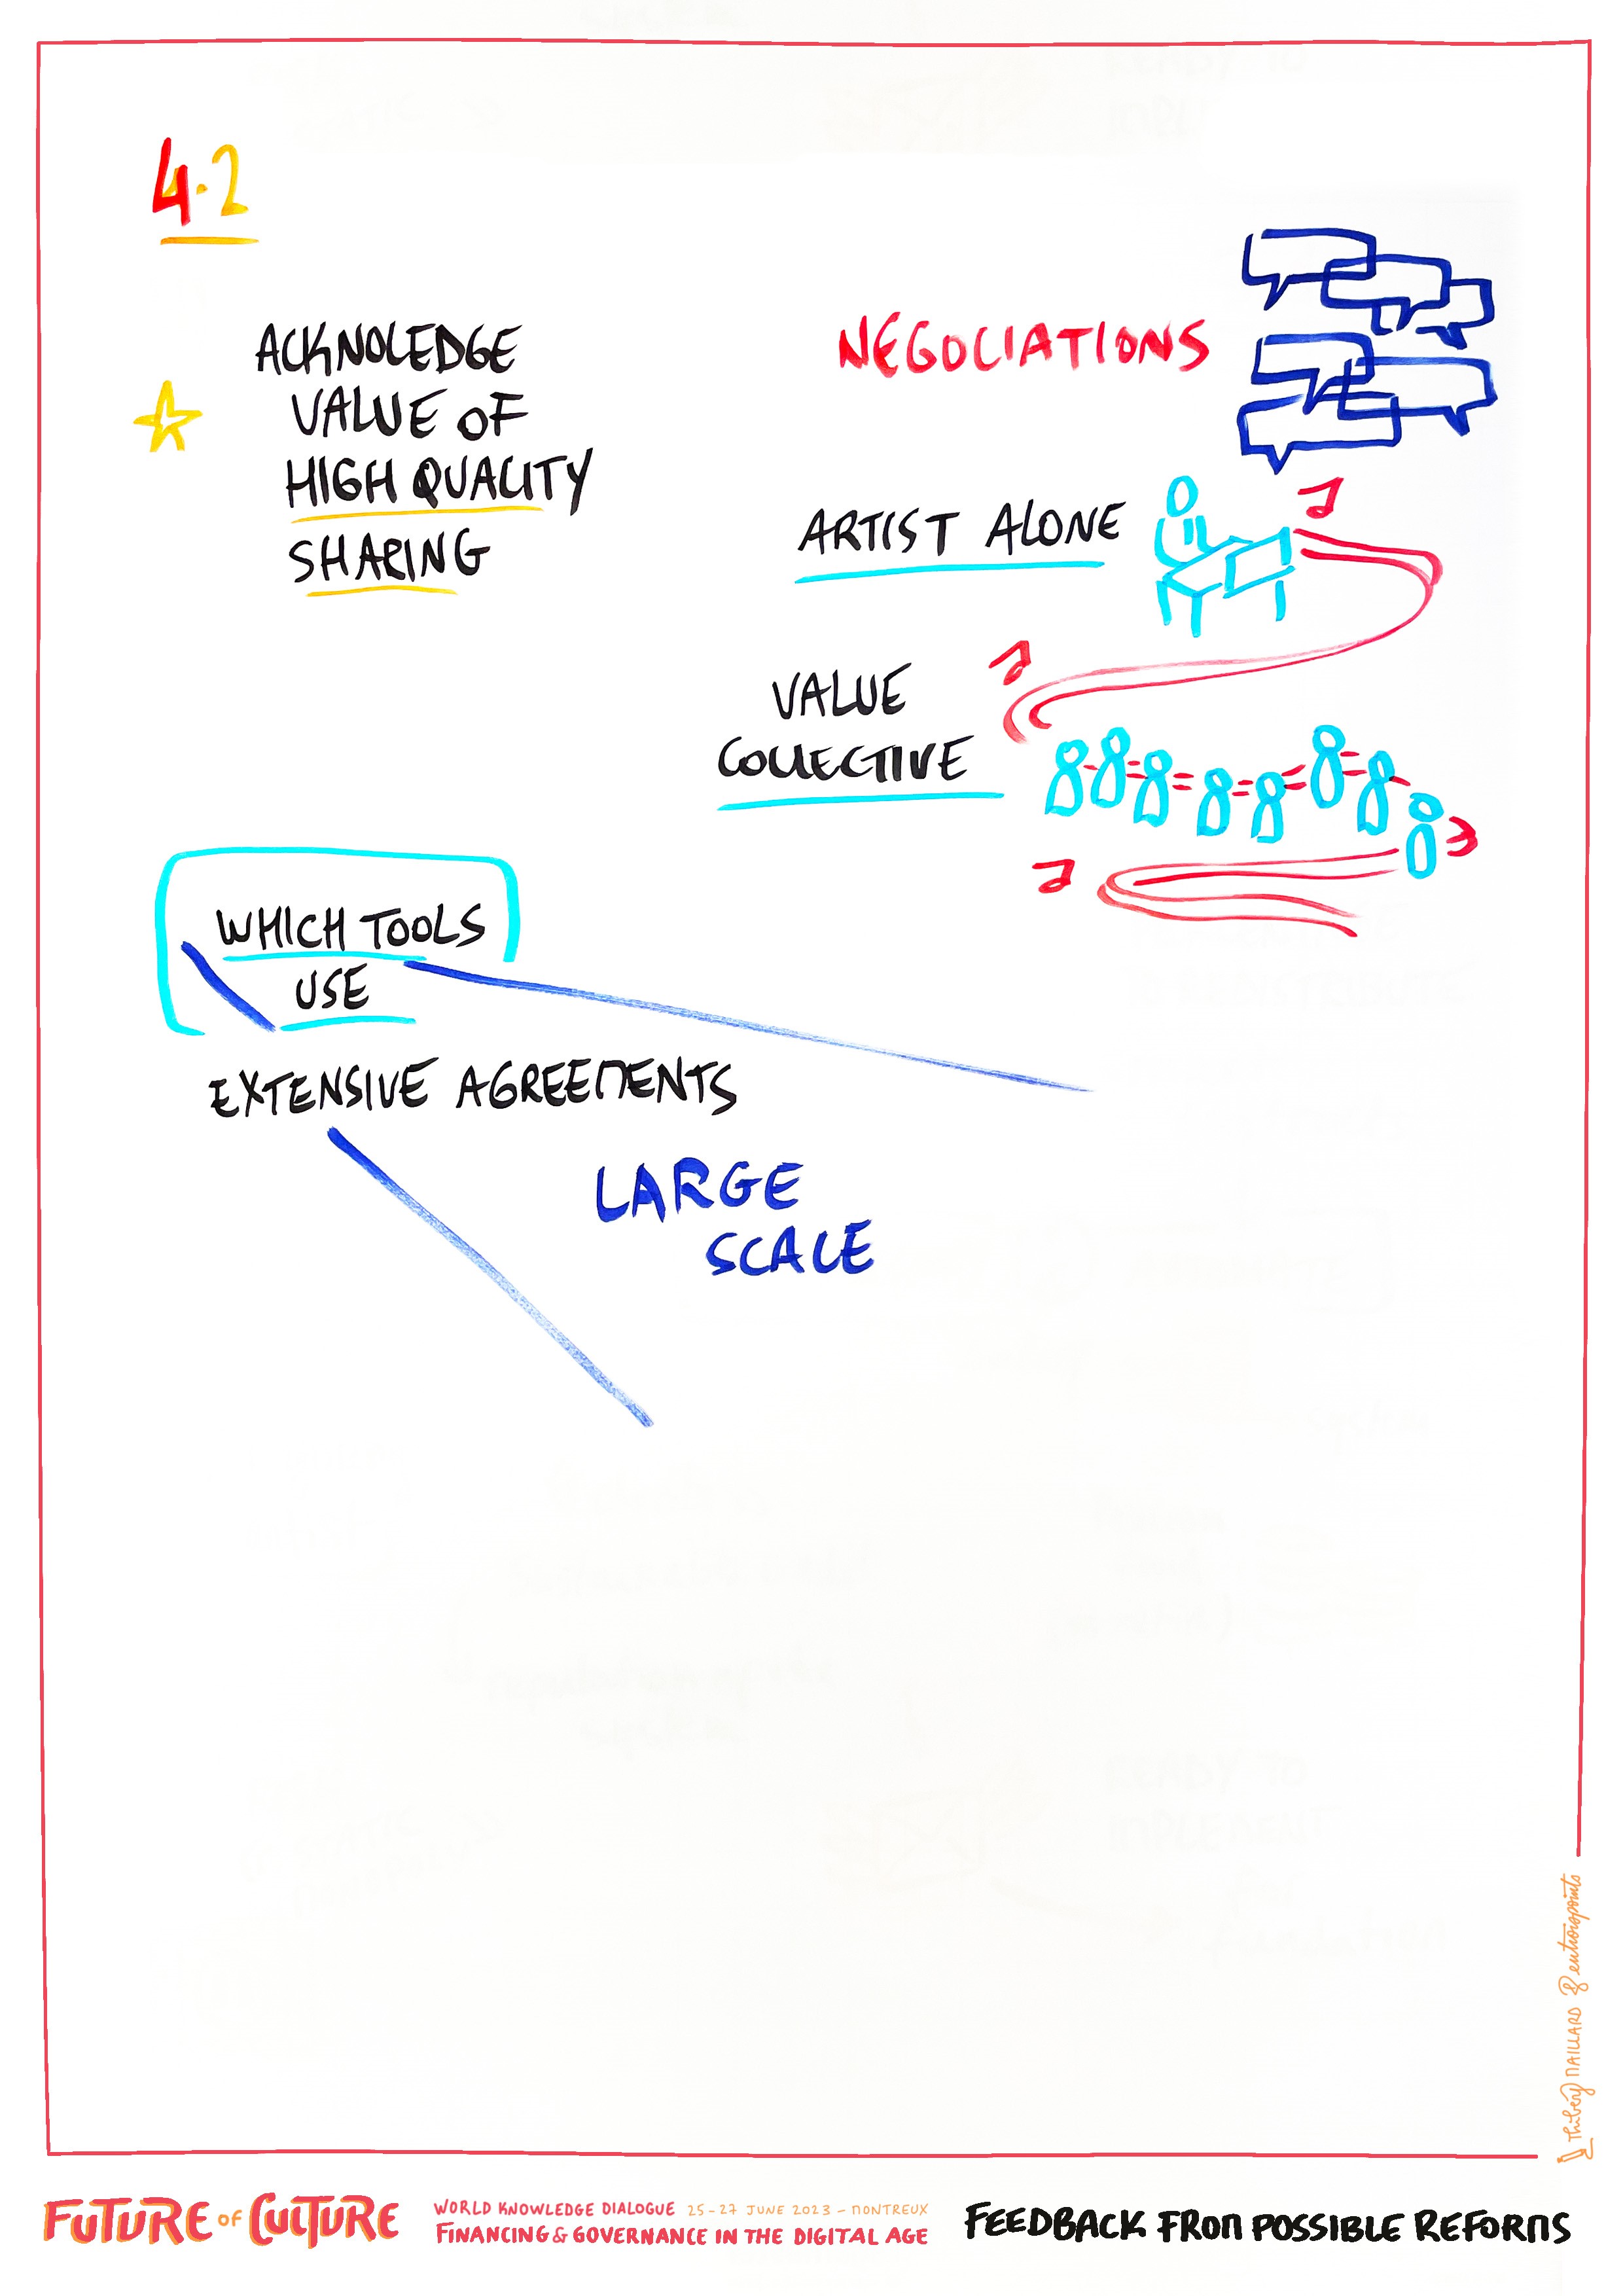 4.2
ACKNOLEDGE
VALUE OF
HIGH QUALITY
SHARING
NEGOCIATIONS
ARTIST ALONE
VALUE
COLLECTIVE
WHICH TOOLS
USE
EXTENSIVE AGREEMENTS
LARGE
SCALE
FUTURE OF CULTURE
WORLD KNOWLEDGE DIALOGUE 25-27 JUNE 2023 - MONTREUX
FINANCING & GOVERNANCE IN THE DIGITAL AGE
FEEDBACK FROM POSSIBLE REFORMS
MAILLARD
READY TO
IMPLEMENT